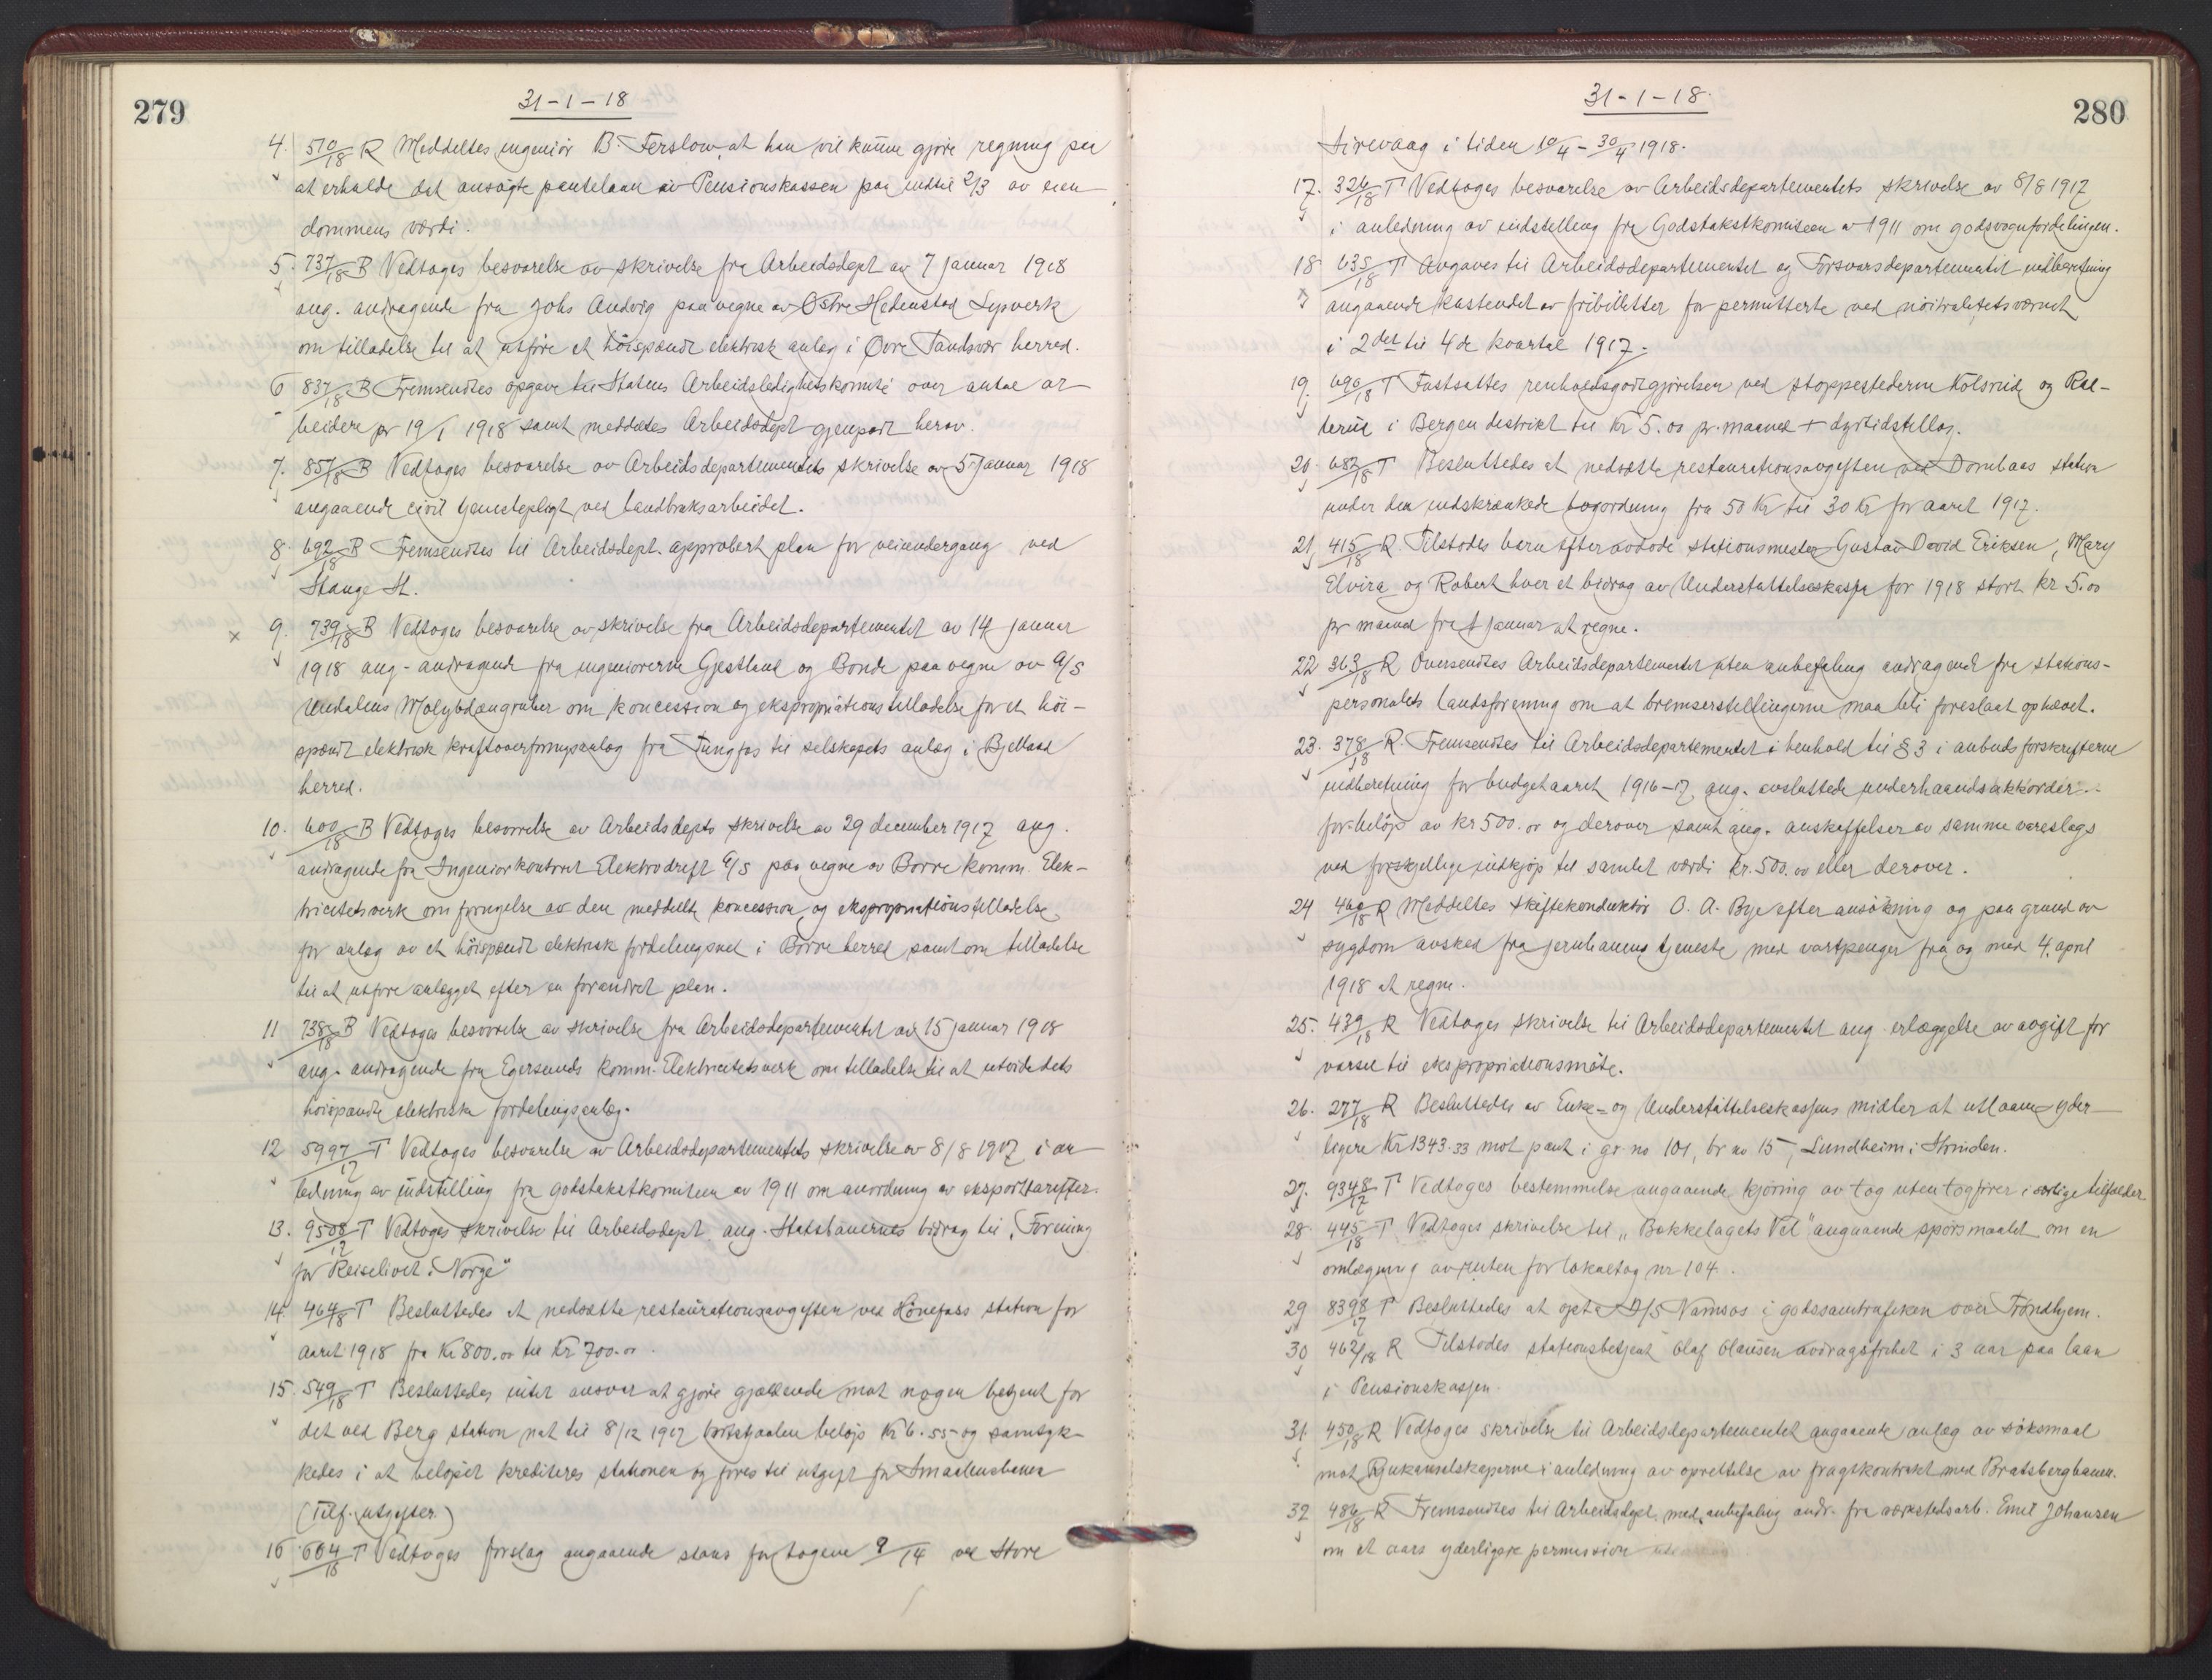 279
31-1-18
4. 510/18 R Meddeltes ingeniör B. Ferslow, at han vil kunne gjöre regning paa
at erholde det ansögte pantelaan av Pensionskassen paa indtil 2/3 av eien-
dommens værdi.
5. 737/18 B Vedtoges besvarelse av skrivelse fra Arbeidsdept av 7 januar 1918
ang. andragende fra Johs Andvig paa vegne av Østre Hedenstad Lysverk
om tilladelse til at utföre et höispændt elektrisk anlæg i Øvre Sandsvær herred.
6 837/18 B Fremsendtes opgave til Statens Arbeidsledighetskomité over antal ar-
beidere pr 19/1 1918 samt meddeltes Arbeidsdept gjenpart herav.
7. 857/18 B Vedtoges besvarelse av Arbeidsdepartementets skrivelse av 5 januar 1918
angaaende civil tjenestepligt ved landbruksarbeidet.
8. 692/18 B Fremsendtes til Arbeidsdept. approbert plan for veiundergang ved
Stange St.
x 9. 739/18 B Vedtoges besvarelse av skrivelse fra Arbeidsdepartementet av 14 januar
1918 ang. andragende fra ingeniörerne Gjestland og Bonde paa vegne av A/S
Undalens Molybdængruber om koncession og ekspropriationstilladelse for et höi-
spændt elektrisk kraftoverföringsanlæg fra Tungfos til selskapets anlæg i Bjelland
herred.
10. 600/18 B Vedtoges besvarelse av Arbeidsdepts skrivelse av 29 december 1917 ang.
andragende fra Ingeniörkontoret Elektrodrift A/S paa vegne av Borre komm. Elek-
tricitetsverk om fornyelse av den meddelte koncession og ekspropriationstilladelse
for anlæg av et höispændt elektrisk fordelingsnet i Borre herred samt om tilladelse
til at utföre anlægget efter en forandret plan.
11 738/18 B Vedtoges besvarelse av skrivelse fra Arbeidsdepartementet av 15 januar 1918
ang. andragende fra Egersunds komm. Elektricitetsverk om tilladelse til at utvide dets
höispændte elektriske fordelingsanlæg.
12 5997/17 T Vedtoges besvarelse av Arbeidsdepartementets skrivelse av 8/8 1917 i an-
ledning av indstilling fra godstakstkomiteen av 1911 om anordning av eksporttariffer.
13. 9508/17 T Vedtoges skrivelse til Arbeidsdept. ang. Statsbanernes bidrag til „Forening
for Reiselivet i Norge"
14. 464/18 T Besluttedes at nedsætte restaurationsavgiften ved Hönefoss station for
aaret 1918 fra Kr 800.00 til Kr 700.00.
15. 549/18 T Besluttedes intet ansvar at gjöre gjældende mot nogen betjent for
det ved Berg station nat til 8/12 1917 bortstjaalen belöp Kr 6.55 og samtyk-
kedes i at belöpet krediteres stationen og föres til utgift for Smaalensbanen
(Tilf. utgifter.)
16 664/18 T Vedtoges forslag angaaende stans for togene 9/14 ved Store
280
31-1-18.
Sirevaag i tiden 10/4 - 30/4 1918.
17. 326/18 T Vedtoges besvarelse av Arbeidsdepartementets skrivelse av 8/8 1917
i anledning av indstilling fra Godstakstkomiteen av 1911 om godsvognfordelingen.
18 635/18 T Avgaves til Arbeidsdepartementet og Forsvarsdepartementet indberetning
angaaende kostendet av fribilletter for permitterte ved nöitralitetsvernet
i 2det til 4de kvartal 1917.
19. 690/18 T Fastsattes renholdsgodtgjörelsen ved stoppestederne Kolsrud og Ral-
lerud i Bergen distrikt til Kr 5.00 pr. maaned + dyrtidstillæg.
20. 682/18 T Besluttedes at nedsætte restaurationsavgiften ved Dombaas station
under den indskrænkede togordning fra 50 Kr til 30 Kr for aaret 1917.
21. 415/18 R Tilstodes barn efter avdöde stationsmester Gustav David Eriksen, Mary
Elvira og Robert hver et bidrag av Understøttelseskassen for 1918 stort kr 5.00
pr maaned fra 1 januar at regne.
22 363/18 R Oversendtes Arbeidsdepartementet uten anbefaling andragende fra stations-
personalets landsforening om at bremserstillingerne maa bli foreslaat ophævet.
23. 378/18 R. Fremsendtes til Arbeidsdepartementet i henhold til § 3 i anbudsforskrifterne
indberetning for budgetaaret 1916-17 ang. avsluttede underhaandsakkorder
for belöp av kr 500.00 og derover samt ang. anskaffelser av samme vareslags
ved forskjellige indkjöp til samlet værdi kr. 500.00 eller derover.
24 460/18 R Meddeltes skiftekonduktör O. A. Bye efter ansökning og paa grund av
sygdom avsked fra jernbanens tjeneste, med vartpenger fra og med 4. april
1918 at regne.
25. 439/18 R Vedtoges skrivelse til Arbeidsdepartementet ang. erlæggelse av avgift for
varsel til ekspropriationsmöte.
26. 277/18 R Besluttedes av Enke- og Understøttelseskassens midler at utlaane yder-
ligere Kr 1343.33 mot pant i gr. no 101, br no 15, Lundheim i Strinden.
27. 9348/17 T Vedtoges bestemmelse angaaende kjöring av tog uten togförer i særlige tilfælder
28. 445/18 T Vedtoges skrivelse til „Bækkelagets Vel" angaaende spörsmaalet om en
omlægning av ruten for lokaltog nr 104.
29 8398/17 T Besluttedes at opta D/S Namsos i godssamtrafiken over Trondhjem.
30 462/18 R Tilstodes stationsbetjent Olaf Olausen avdragsfrihet i 3 aar paa laan
i Pensionskassen.
31. 450/18 R Vedtoges skrivelse til Arbeidsdepartementet angaaende anlæg av söksmaal
mot Rjukanselskaperne i anledning av oprettelse av fragtkontrakt med Bratsbergbanen.
32 486/18 R Fremsendtes til Arbeidsdept. med anbefaling andr. fra verkstedsarb. Emil Johansen
om et aars yderligere permission